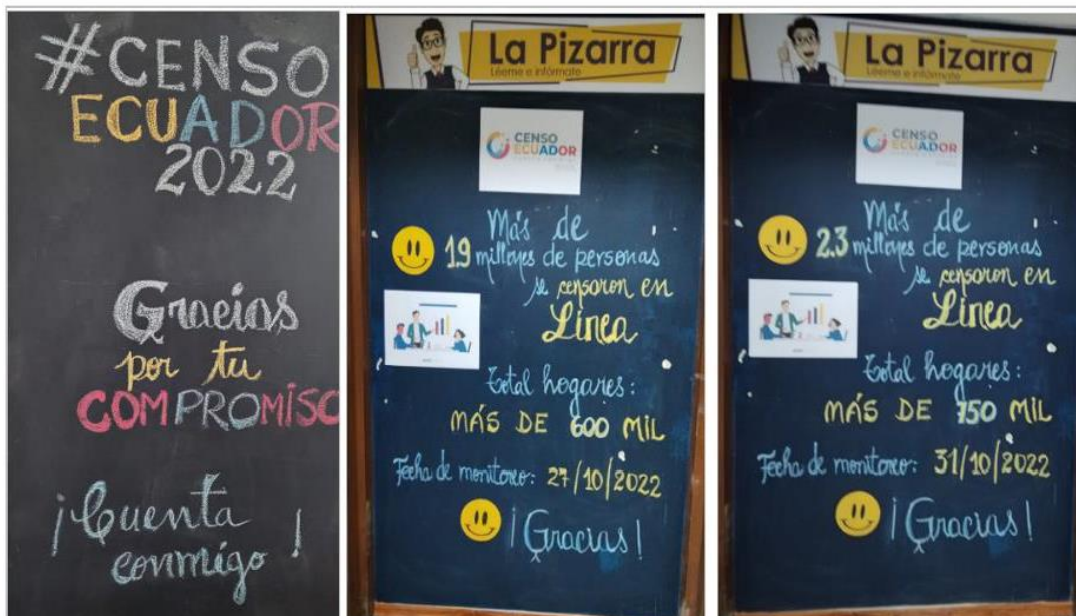 #CENSO
ECUADOR
2022
Gracias
por tu
COMPROMISO
¡Cuenta
conmigo!
La Pizarra
Léeme e infórmate
CENSO
ECUADOR
Más de
1.9 millones de personas
se censaron en
Línea
Total hogares:
MÁS DE 600 MIL
Fecha de monitoreo: 27/10/2022
¡Gracias!
La Pizarra
Léeme e infórmate
CENSO
ECUADOR
Más de
2.3 millones de personas
se censaron en
Línea
Total hogares:
MÁS DE 750 MIL
Fecha de monitoreo: 31/10/2022
¡Gracias!